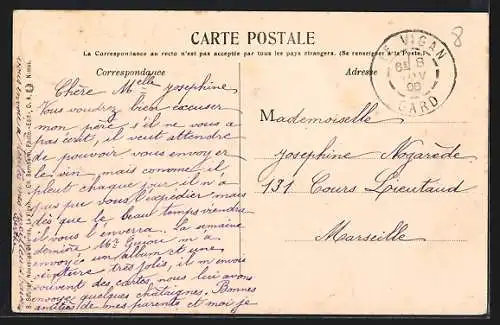 CARTE POSTALE
La Correspondance au recto n'est pas acceptée par tous les pays étrangers. (Se renseigner à la Poste.)
Correspondance
Adresse
LE VIGAN
8
NOV
GARD
8
Chère Melle Josephine
Vous voudrez bien excuser
mon père s'il ne vous a
pas écrit, il veut attendre
de pouvoir vous envoyer
le vin, mais comme il
pleut chaque jour il n'a
pas pue vous l'expedier mais
dès que le beau temps viendra
il vous l'enverra. La semaine
dernière Mr Guiou m'a
envoyée un album et une
ceinture très jolies, il m'envoi
souvent des cartes, nous lui avons
envoyé quelques châtaignes. Bonnes
amitiés de mes parents et moi je
Mademoiselle
Josephine Nogarède
131 Cours Lieutaud
Marseille